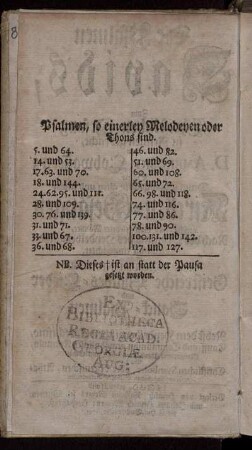 8
Psalmen, so einerley Melodeyen oder
Thons sind.
5. und 64.
14. und 53.
17. 63. und 70.
18. und 144.
24. 62. 95. und 111.
28. und 109.
30. 76. und 139.
31. und 71.
33. und 67.
36. und 68.
46. und 82.
51. und 69.
60. und 108.
65. und 72.
66. 98. und 118.
74. und 116.
77. und 86.
78. und 90.
100. 131. und 142.
117. und 127.
NB. Dieses † ist an statt der Pausa
gesetzt worden.
EX
BIBLIOTHECA
REGIA ACAD.
GEORGIÆ
AUG: